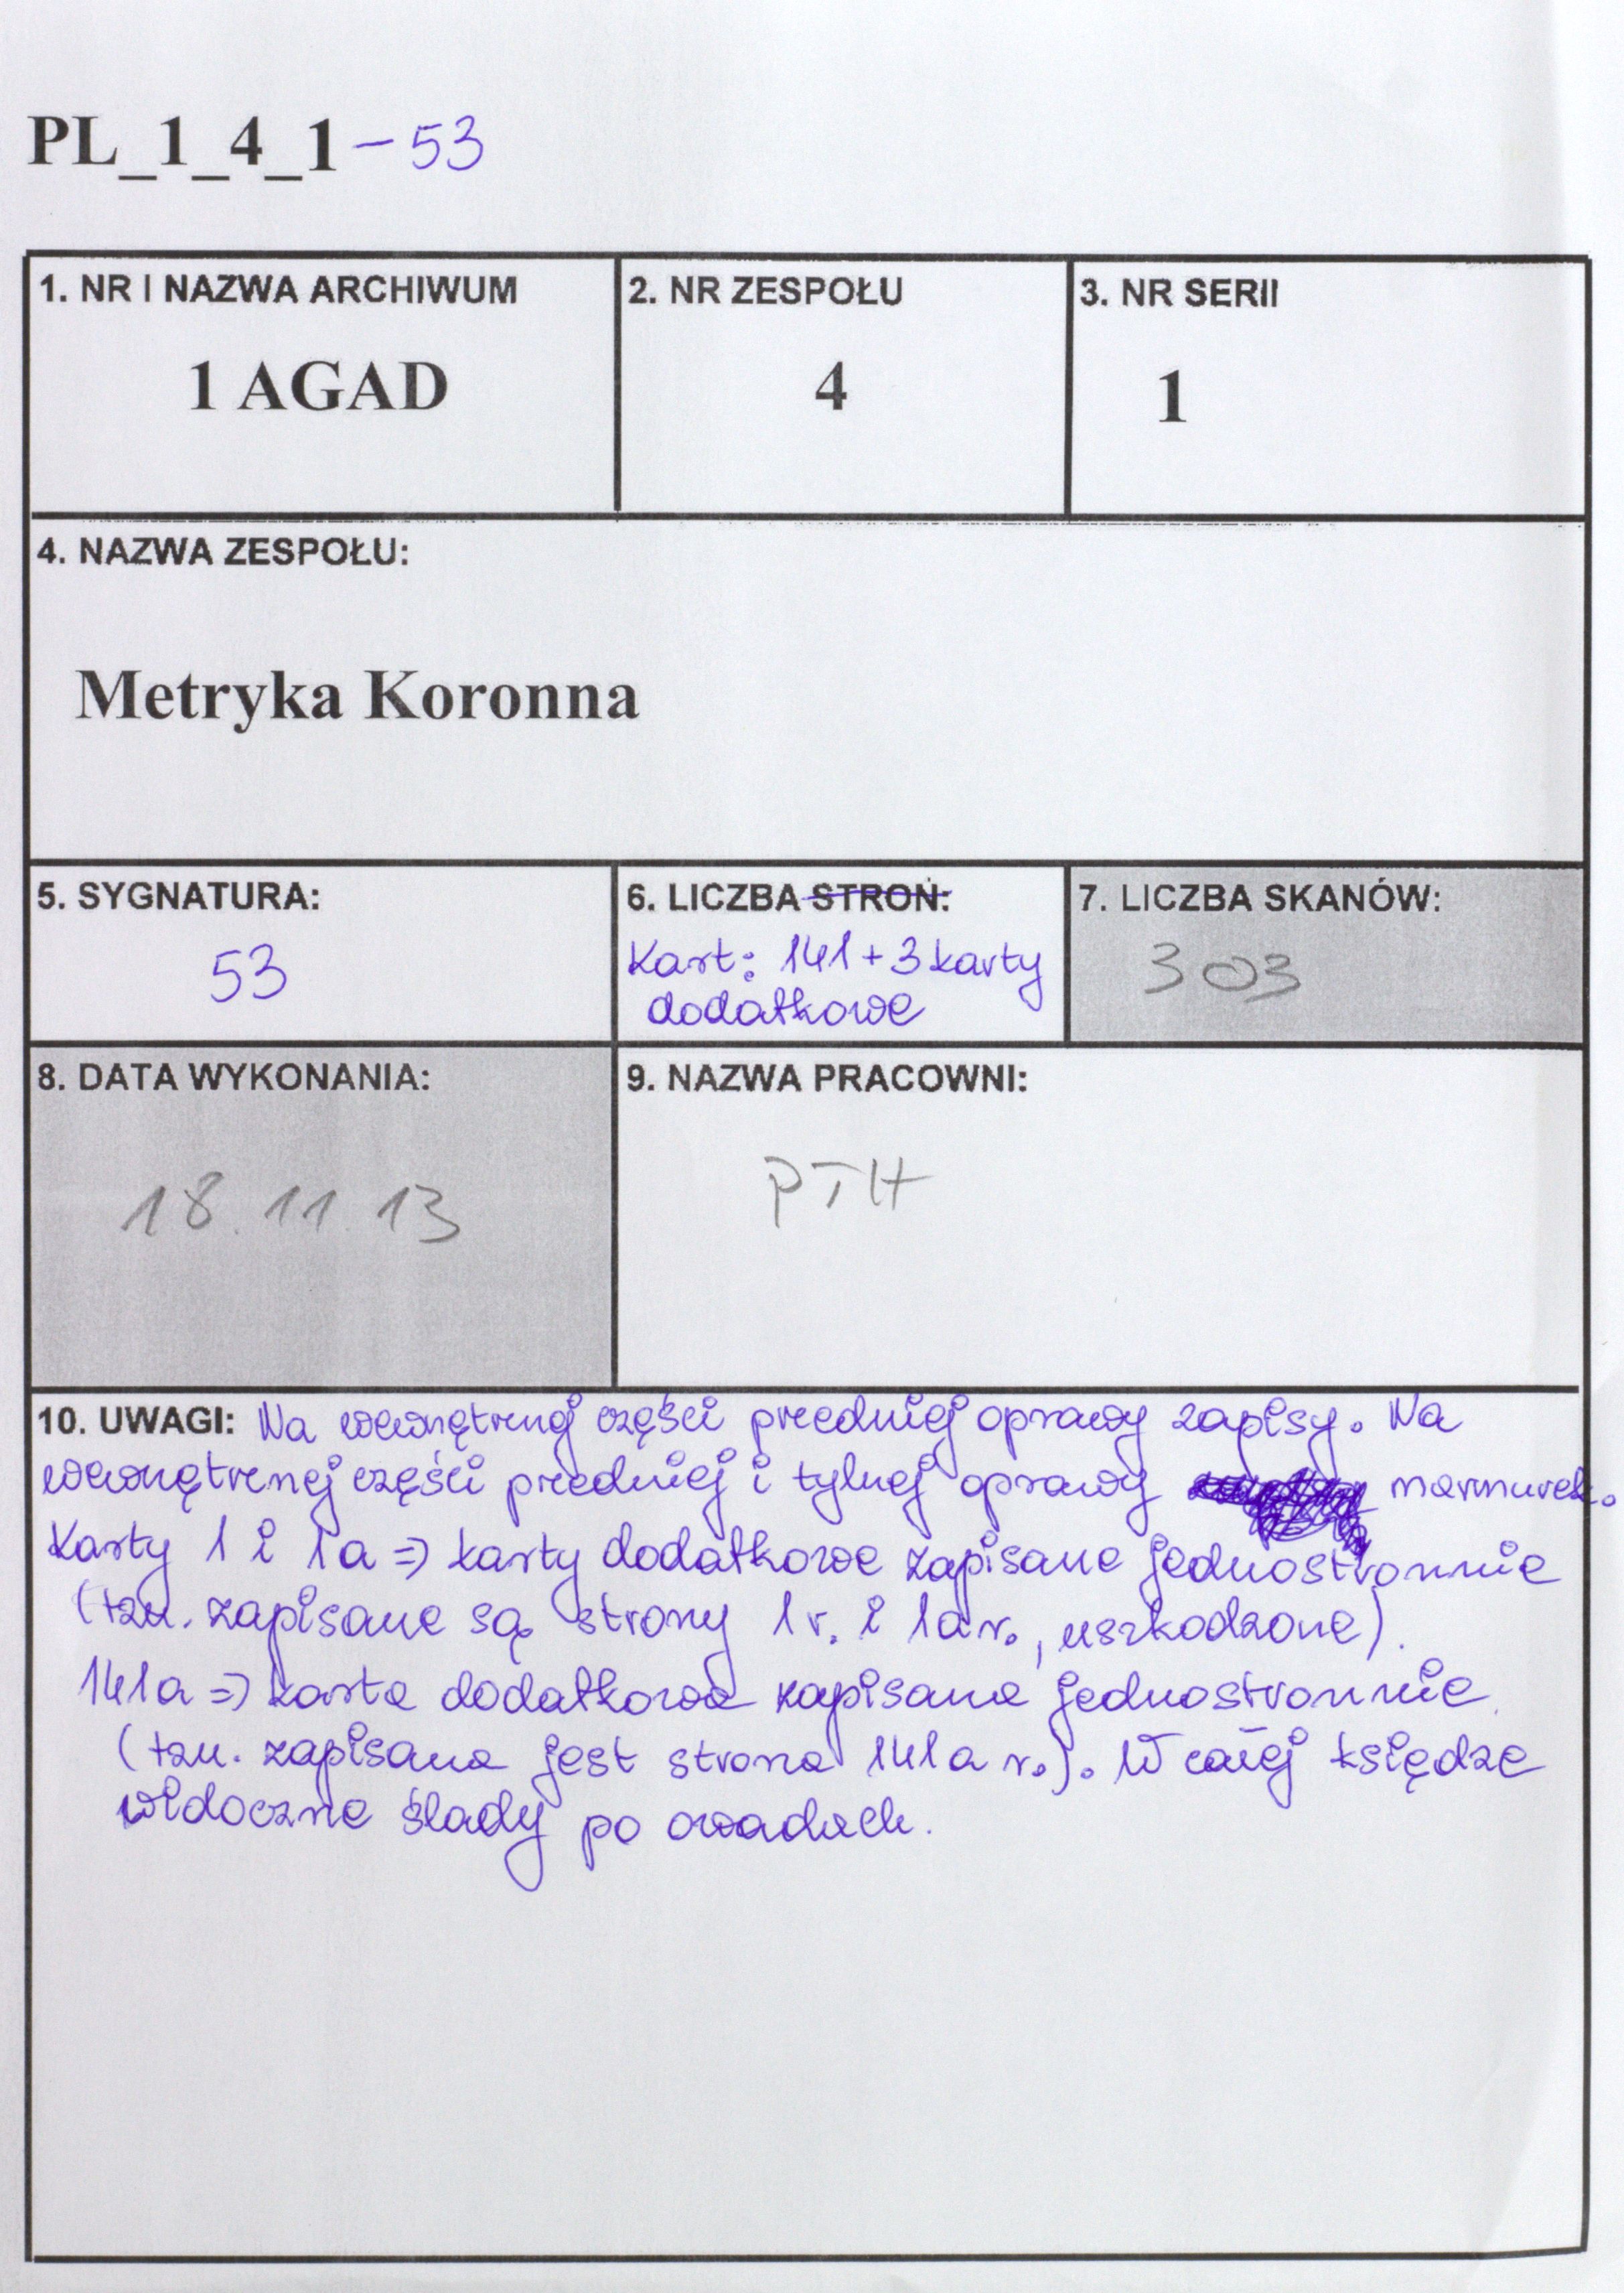 PL_1_4_1 - 53
1. NR I NAZWA ARCHIWUM
1 AGAD
2. NR ZESPOŁU
4
3. NR SERII
1
4. NAZWA ZESPOŁU:
Metryka Koronna
5. SYGNATURA:
53
6. LICZBA STRON:
Kart: 141 + 3 karty
dodatkowe
7. LICZBA SKANÓW:
303
8. DATA WYKONANIA:
18.11.13
9. NAZWA PRACOWNI:
PTH
10. UWAGI: Na wewnętrznej części przedniej oprawy zapisy. Na
wewnętrznej części przedniej i tylnej oprawy marmurek.
Karty 1 i 1a => karty dodatkowe zapisane jednostronnie
(tzn. zapisane są strony 1 r. i 1a r., uszkodzone).
141a => karta dodatkowa zapisana jednostronnie
(tzn. zapisana jest strona 141a r.). W całej księdze
widoczne ślady po owadach.